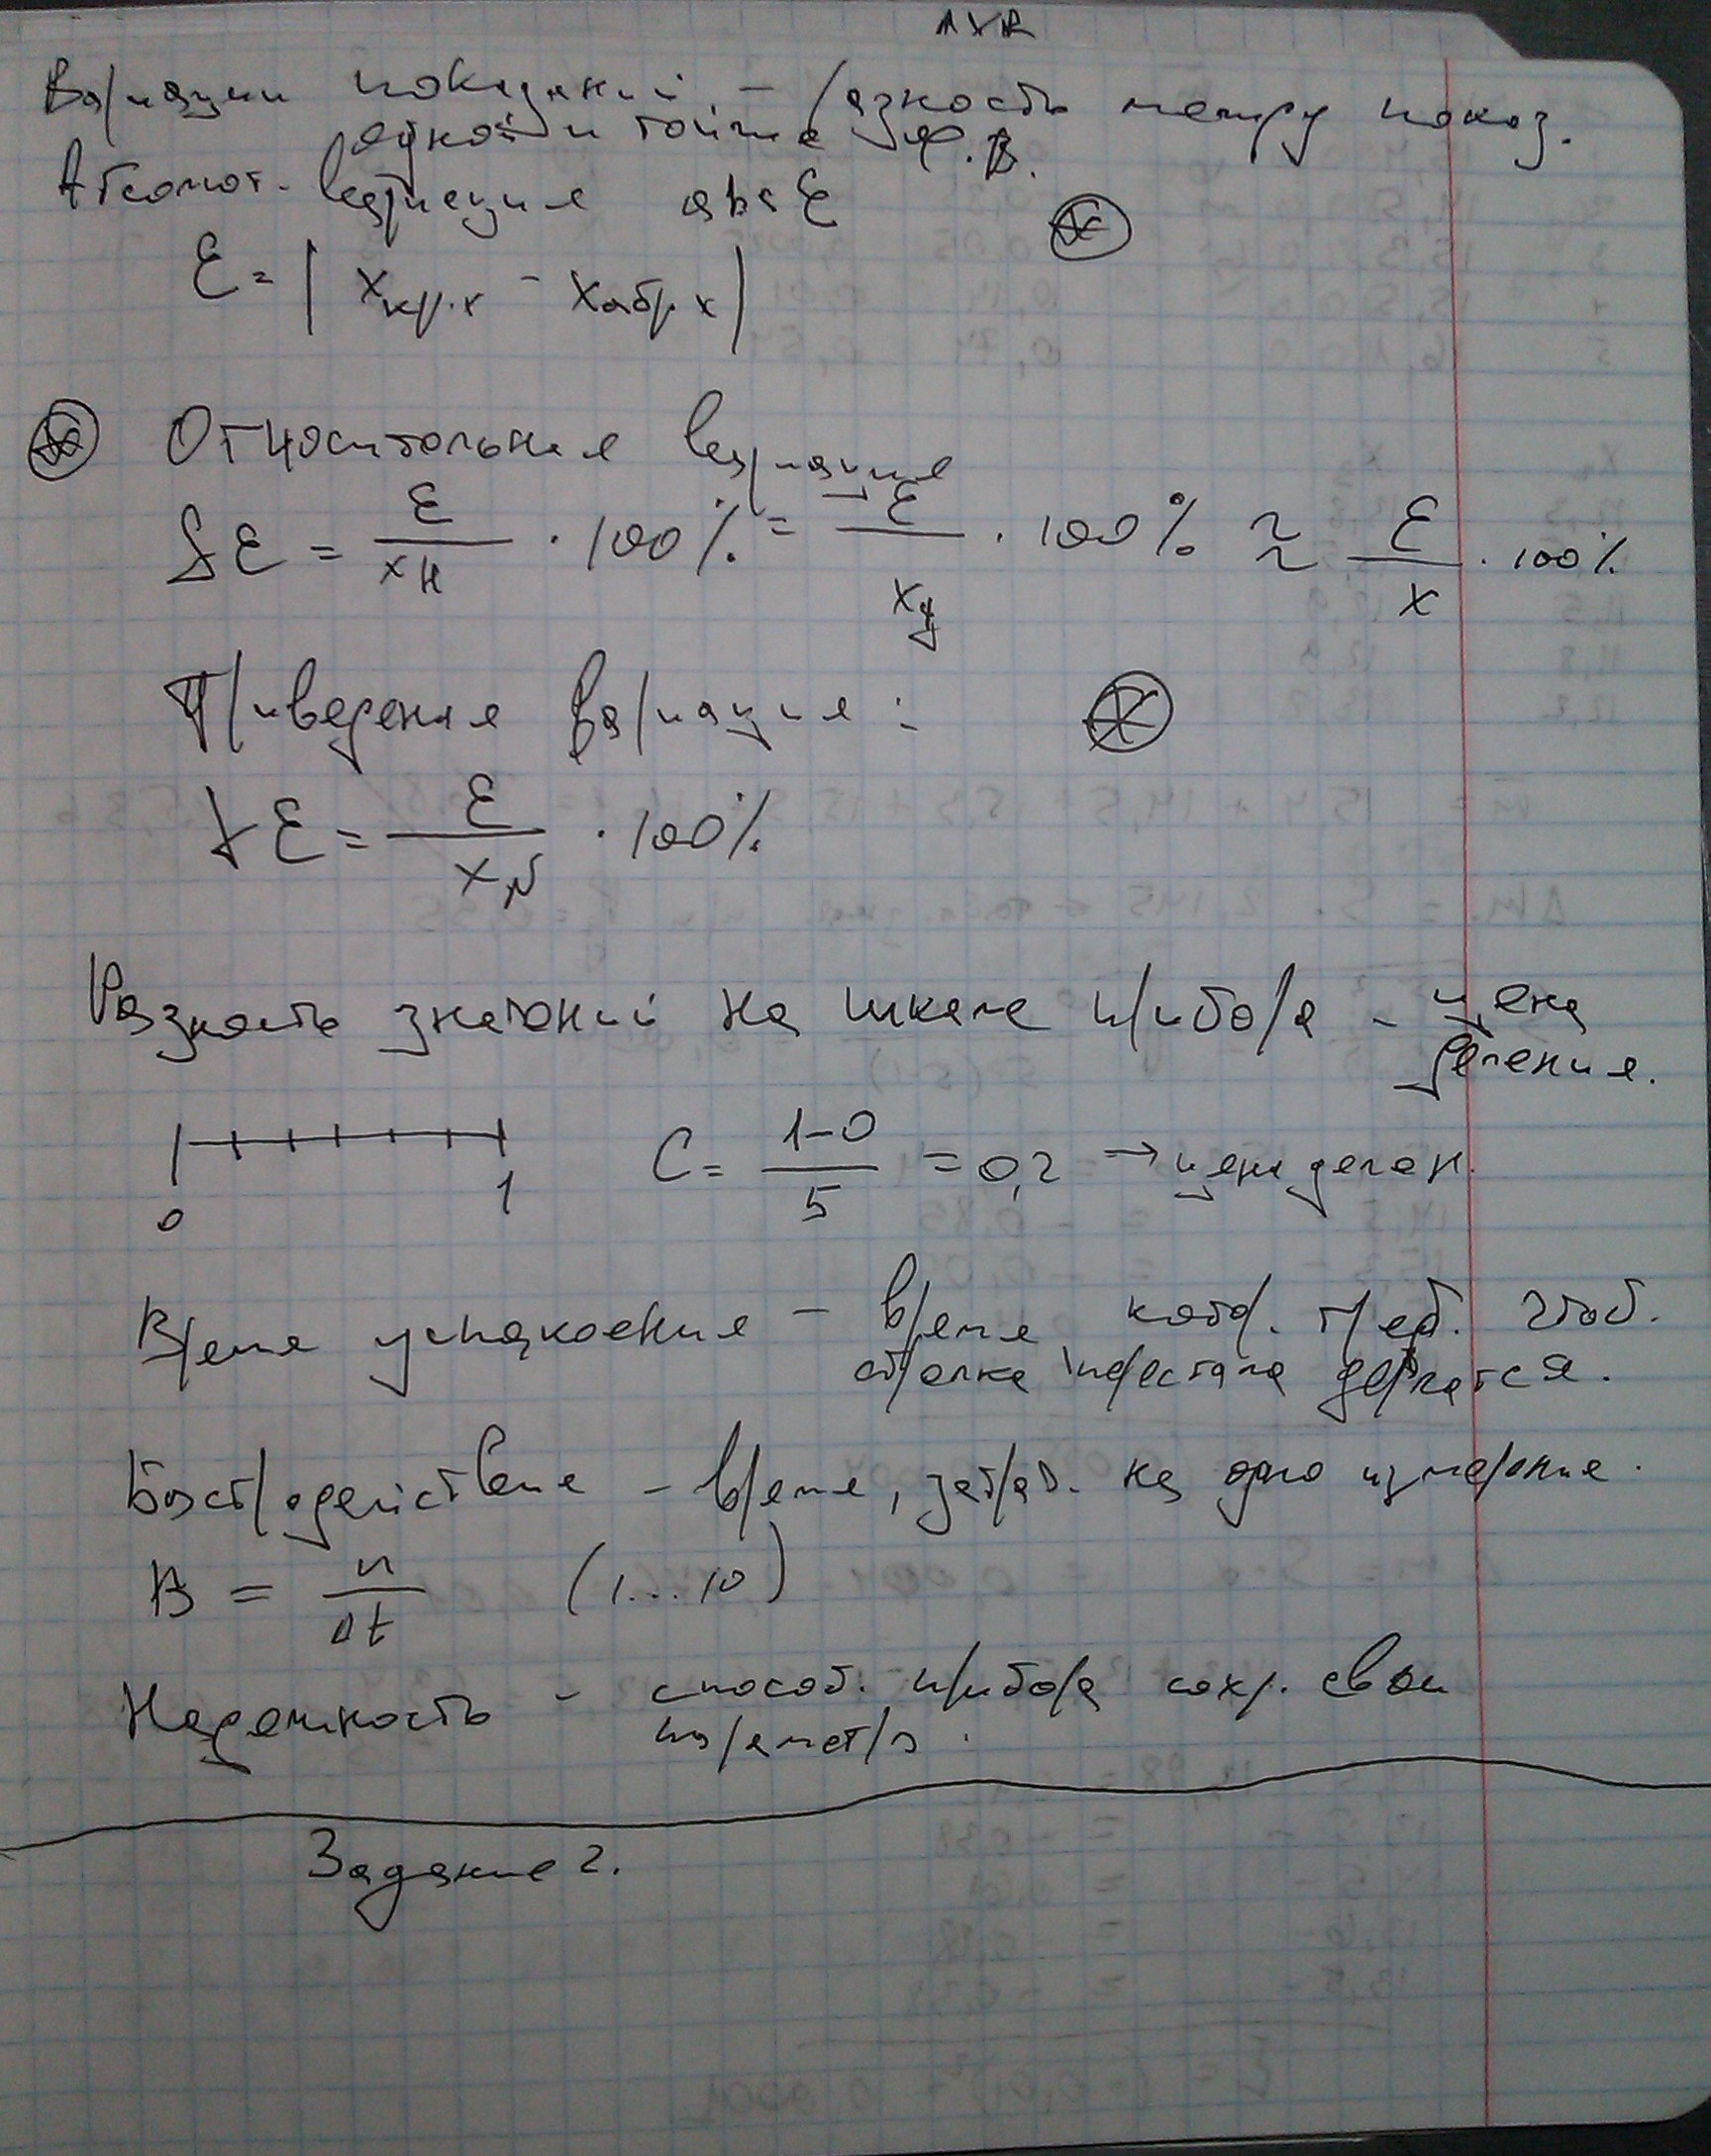 Вариации показаний - разность между показ.
одной и той же ф.в.
Абсолют. вариация abs ε
ε = | xпр.х - xобр.х |
Относительная вариация
δε = ε/xн · 100% = ε/xд · 100% ≈ ε/x · 100%
Приведенная вариация:
γε = ε/xN · 100%
Разность значений на шкале прибора - цена
деления.
0 1 C = 1-0/5 = 0,2 → цена делен.
Время успокоения - время котор. треб. чтоб.
стрелка перестала дергатся.
Быстродействие - время, затрач. на одно измерение.
B = n/Δt (1...10)
Надежность - способ. прибора сохр. свои
Задание 2.